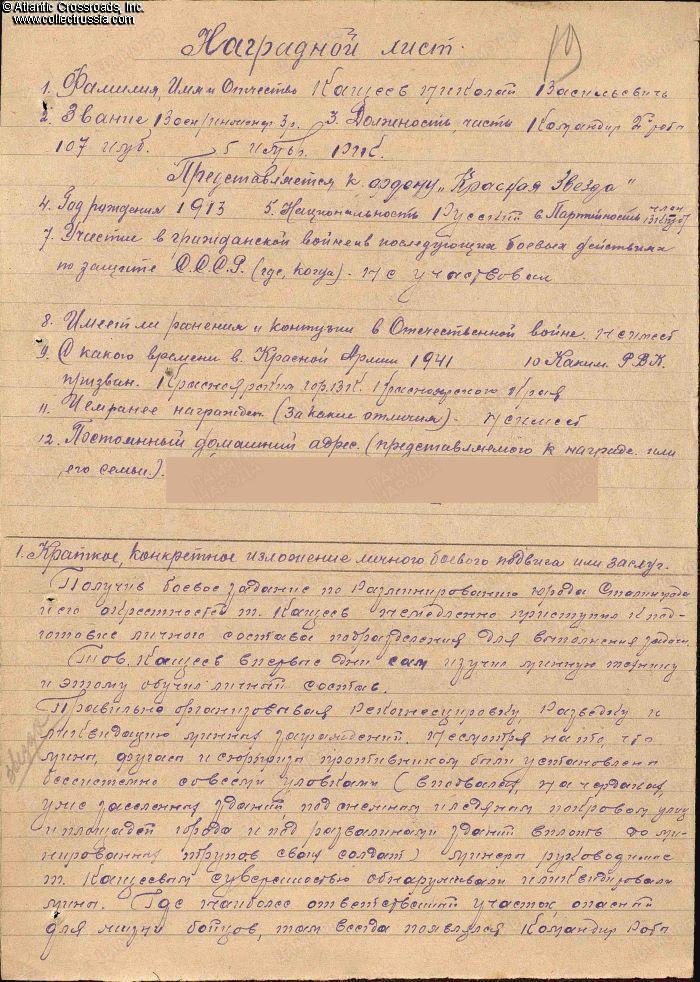 © Atlantic Crossroads, Inc.
www.collectrussia.com
Наградной лист.
19
1. Фамилия, Имя и Отчество Кащеев Николай Васильевич
2. Звание Воен/инженер 3 р. 3. Должность, часть Командир роты
107 5
Представляется к ордену „Красная Звезда"
4. Год рождения 1913 5. Национальность Русский 6 Партийность член
7. Участие в гражданской войне и в последующих боевых действиях
по защите С.С.С.Р. (где, когда) - не участвовал
8. Имеет ли ранения и контузии в Отечественной войне. не имеет
9. С какого времени в Красной Армии 1941 10 Каким Р.В.К.
призван. Красноярским гор. ВК. Красноярского Края
11. Чем ранее награжден (за какие отличия) - не имеет
12. Постоянный домашний адрес. (представляемого к награде или
его семьи.).
1. Краткое, конкретное изложение личного боевого подвига или заслуг.
Получив боевое задание по разминированию города Сталинграда
и его окрестностей т. Кащеев немедленно приступил к под-
готовке личного состава подразделения для выполнения задачи.
Тов. Кащеев в первые дни сам изучил минную технику
и этому обучил личный состав.
Правильно организовывая рекогносцировку, разведку и
ликвидацию минных заграждений. Несмотря на то, что
мины, фугасы и сюрпризы противником были установлены
бессистемно со всеми уловками (в подвалах, на чердаках
уже заселенных зданий под снежным и ледяным покровом улиц
и площадей города и под развалинами зданий вплоть до ми-
нированных трупов своих солдат) минеры руководимые
т. Кащеевым с уверенностью обнаруживали и ликвидировали
мины. Где наиболее ответственный участок опасный
для жизни бойцов, там всегда появлялся Командир роты